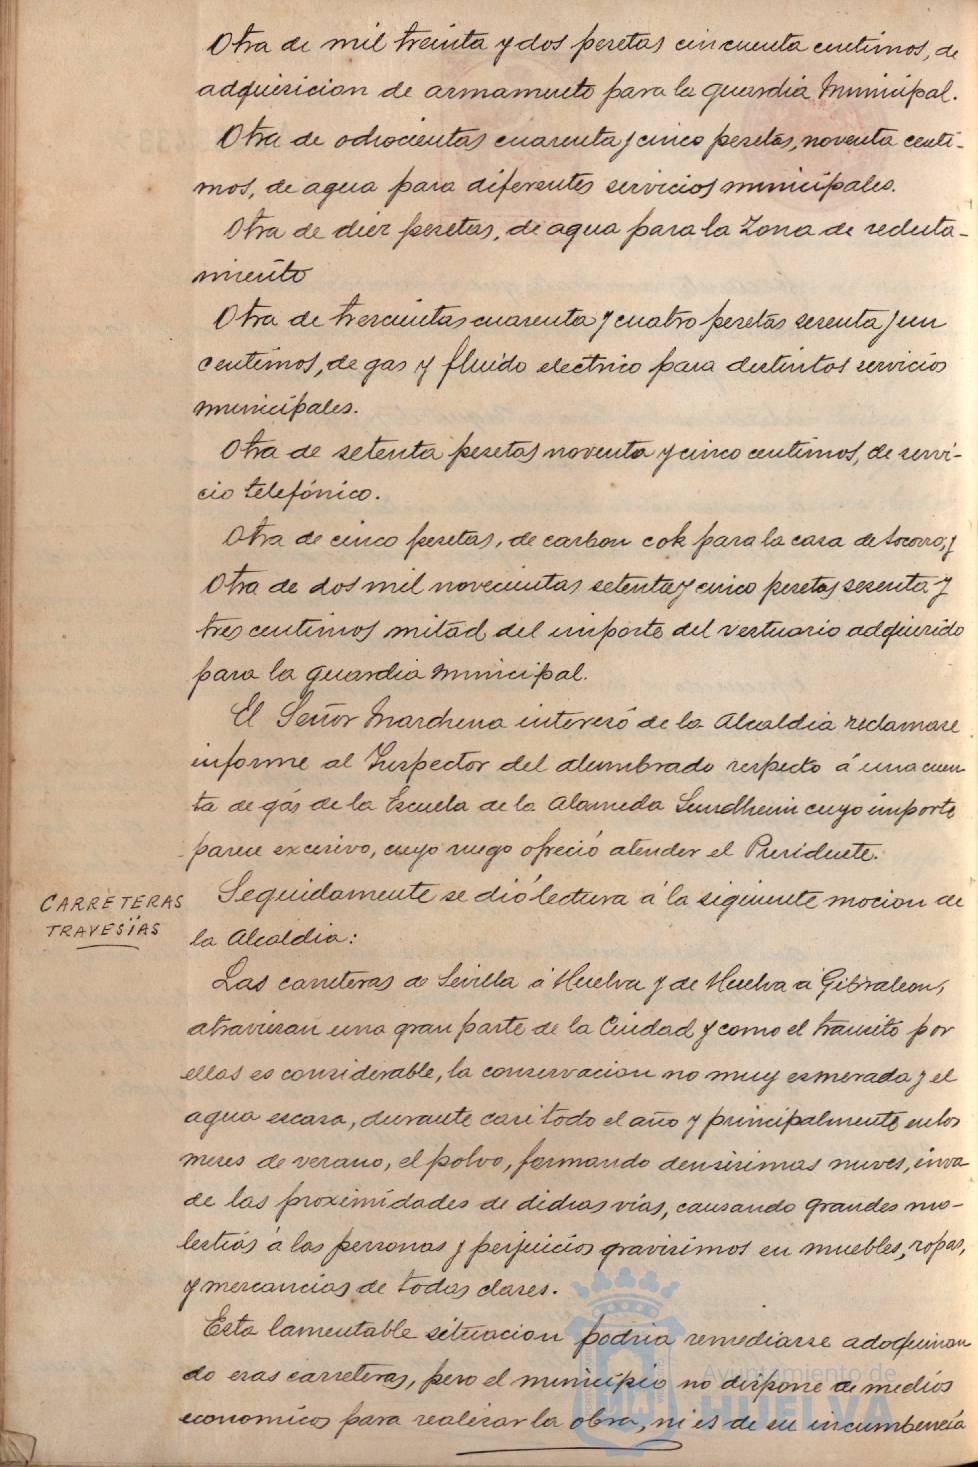 Otra de mil treinta y dos pesetas cincuenta centimos, de
adquisicion de armamento para la guardia Municipal.
Otra de ochocientas cuarenta y cinco pesetas, noventa centi-
mos, de agua para diferentes servicios municipales.
Otra de diez pesetas, de agua para la Zona de recluta-
miento
Otra de trescientas cuarenta y cuatro pesetas sesenta y un
centimos, de gas y fluido electrico para distintos servicios
municipales.
Otra de setenta pesetas noventa y cinco centimos, de servi-
cio telefónico.
Otra de cinco pesetas, de carbon cok para la casa de socorro; y
Otra de dos mil novecientas setenta y cinco pesetas sesenta y
tres centimos mitad del importe del vestuario adquirido
para la guardia Municipal.
El Señor Marchena interesó de la Alcaldia reclamase
informe al Inspector del alumbrado respecto á una cuen-
ta de gás de la Escuela de la Alameda Sundheim cuyo importe
parece excesivo, cuyo ruego ofreció atender el Presidente.
CARRETERAS
TRAVESÍAS
Seguidamente se dió lectura á la siguiente mocion de
la Alcaldia:
Las carreteras de Sevilla á Huelva y de Huelva á Gibraleon,
atraviesan una gran parte de la Ciudad y como el transito por
ellas es considerable, la conservacion no muy esmerada y el
agua escasa, durante casi todo el año y principalmente en los
meses de verano, el polvo, formando densisimas nuves, inva
de las proximidades de dichas vias, causando grandes mo-
lestias á las personas y perjuicios gravisimos en muebles, ropas,
y mercancias de todas clases.
Esta lamentable situacion podria remediarse adoquinan
do esas carreteras, pero el municipio no dispone de medios
economicos para realizar la obra, ni es de su incumbencia
Ayuntamiento de
HUELVA